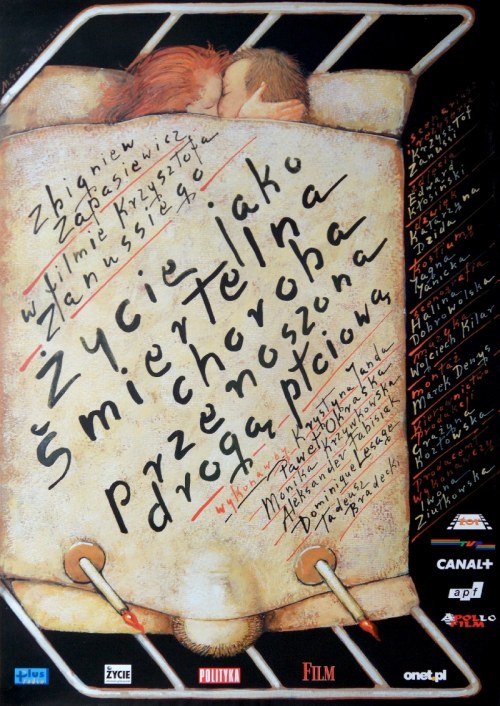 Zbigniew
Zapasiewicz
w filmie Krzysztofa
Zanussiego
Życie jako
Śmiertelna
choroba
przenoszona
drogą płciową
wykonawcy Krystyna Janda
Paweł Okraska
Monika Krzywkowska
Aleksander Fabisiak
Dominique Lesage
Tadeusz
Bradecki
Krzysztof
Zanussi
Edward
Kłosiński
Katarzyna
kostiumy
Jagna
Janicka
scenografia
Halina
Dobrowolska
muzyka
Wojciech Kilar
montaż
Marek Denys
Grażyna
Kozłowska
Iwona
Ziułkowska
tor
TVP
CANAL+
apf
APOLLO
FILM
plus
ŻYCIE
POLITYKA
FILM
onet.pl